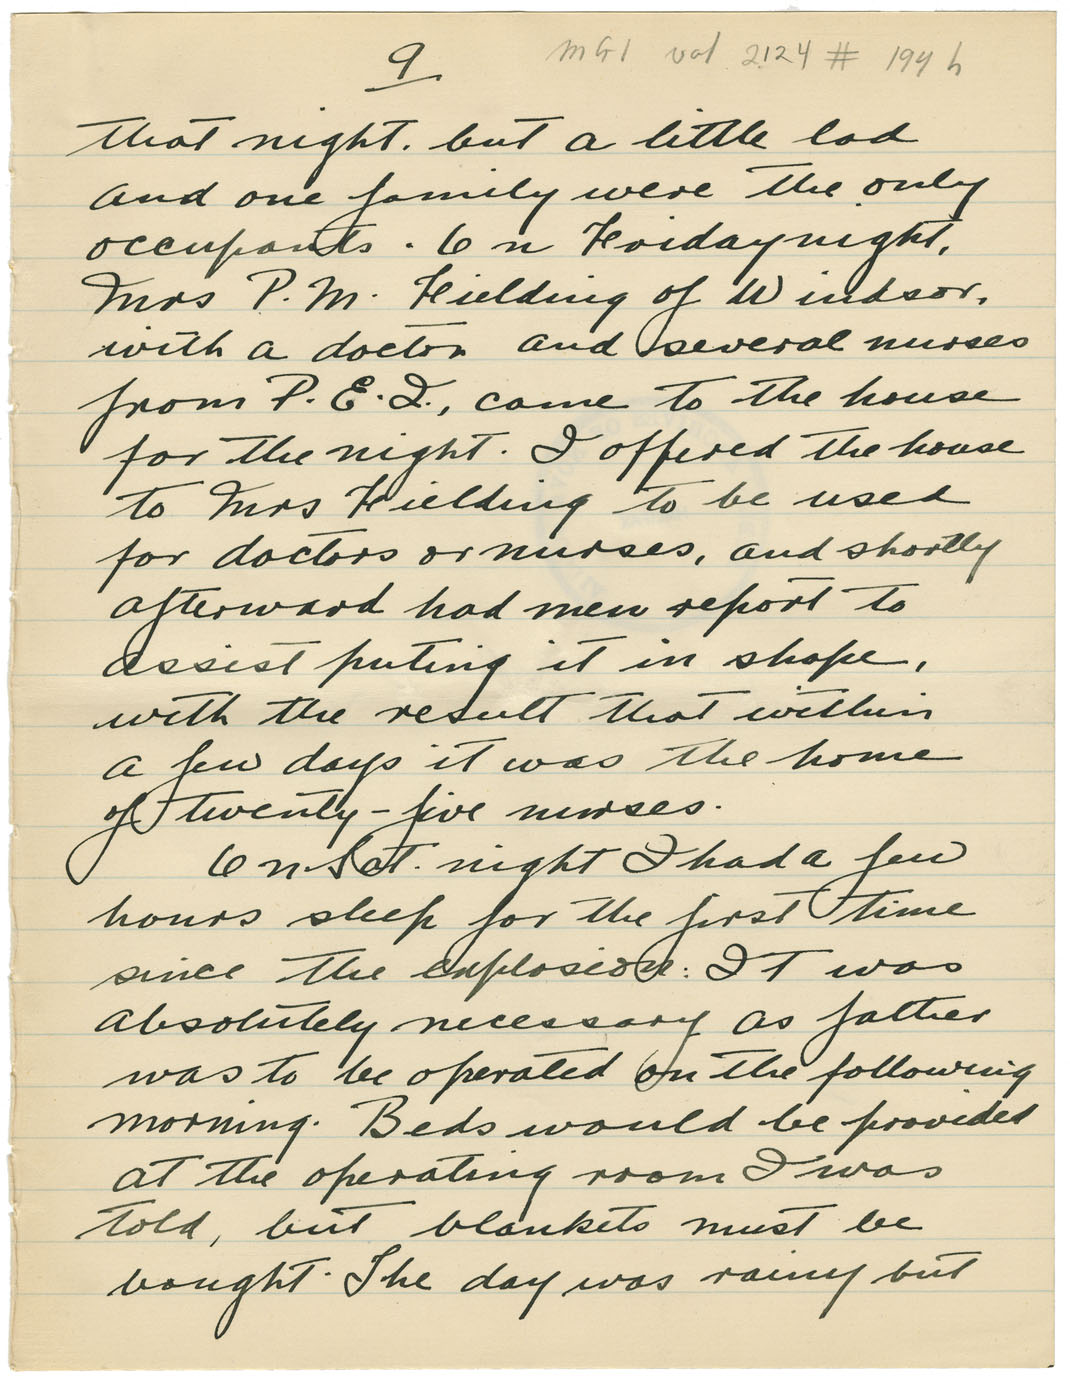 9
MG1 vol 2124 # 194 h
that night. but a little lad
and one family were the only
occupants. On Friday night,
Mrs P. M. Fielding of Windsor,
with a doctor and several nurses
from P. E. I., came to the house
for the night. I offered the house
to Mrs Fielding to be used
for doctors or nurses, and shortly
afterward had men report to
assist puting it in shape,
with the result that within
a few days it was the home
of twenty-five nurses.
On Sat. night I had a few
hours sleep for the first time
since the explosion. It was
absolutely necessary as father
was to be operated on the following
morning. Beds would be provided
at the operating room I was
told, but blankets must be
bought. The day was rainy but